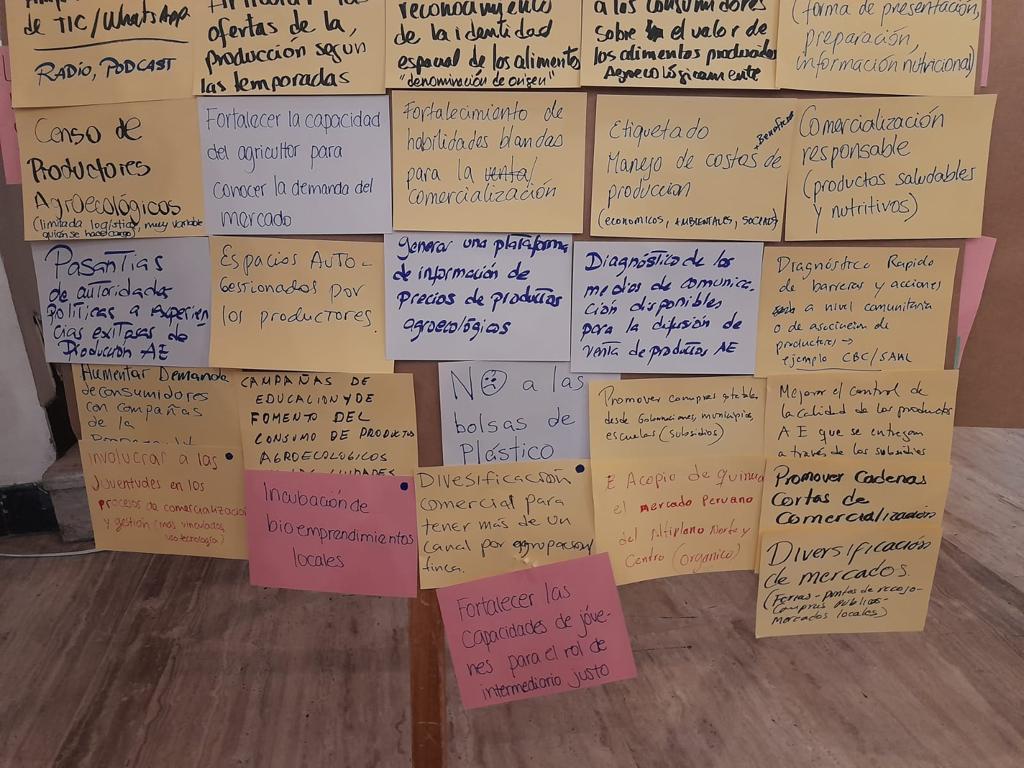 de TIC/WhatsApp.
RADIO, PODCAST
ofertas de la,
producción según
las temporadas
reconocimiento
de la identidad
espacial de los alimentos
"denominación de origen"
a los consumidores
sobre el valor de
los alimentos producidos
Agroecológicamente
(forma de presentación,
preparación,
información nutricional)
Censo de
Productores
Agroecológicos
(limitada logística, muy variable
quién se hace cargo)
Fortalecer la capacidad
del agricultor para
conocer la demanda del
mercado
Fortalecimiento de
habilidades blandas
para la venta/
comercialización
Etiquetado
Manejo de costos de
Beneficios
produccion
(economicos, AMBIENTALES, SOCIALES)
Comercialización
responsable
(productos saludables
y nutritivos)
Pasantías
de autoridades
políticas a experien
cias exitosas de
Producción AE
Espacios Auto-
Gestionados por
los productores.
Generar una plataforma
de información de
precios de productos
agroecológicos
Diagnóstico de los
medios de comunica-
ción disponibles
para la difusión de
venta de productos AE
Diagnóstico Rapido
de barreras y acciones
a nivel comunitario
o de asociacion de
productores →
ejemplo CBC/SAHL
Aumentar Demanda
de consumidores
con campañas
de la
CAMPAÑAS DE
EDUCACION Y DE
FOMENTO DEL
CONSUMO DE PRODUCTOS
AGROECOLOGICOS
NO a las
bolsas de
Plástico
Promover compras estatales
desde Gobernaciones, municipios,
escuelas (subsidios)
Mejorar el control de
la calidad de los productos
AE que se entregan
a través de los subsidios
Involucrar a las
juventudes en los
procesos de comercialización
y gestión (más vinculados
uso tecnología)
Incubación de
bioemprendimientos
locales
Diversificación
comercial para
tener más de un
canal por agrupación/
finca.
E Acopio de quinua
el mercado Peruano
del altiplano Norte y
Centro (organico)
Promover Cadenas
Cortas de
Comercialización
Diversificación
de mercados.
(Ferias - puntos de recojo -
compras públicas -
Mercados locales)
Fortalecer las
capacidades de jóve-
nes para el rol de
intermediario justo